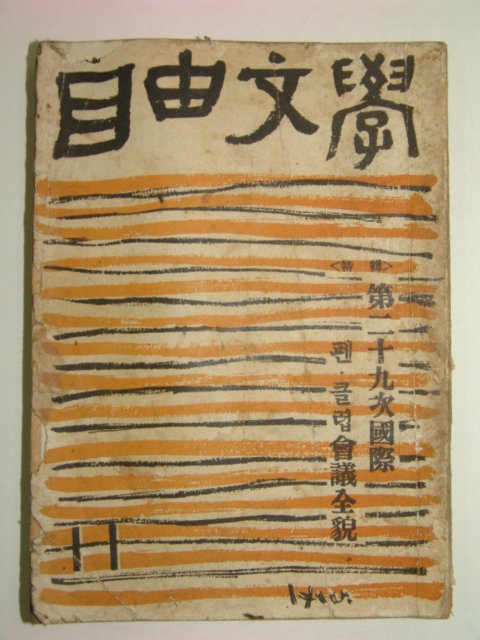 自由文學
<特輯>
第二十九次國際
펜·클럽會議全貌
11